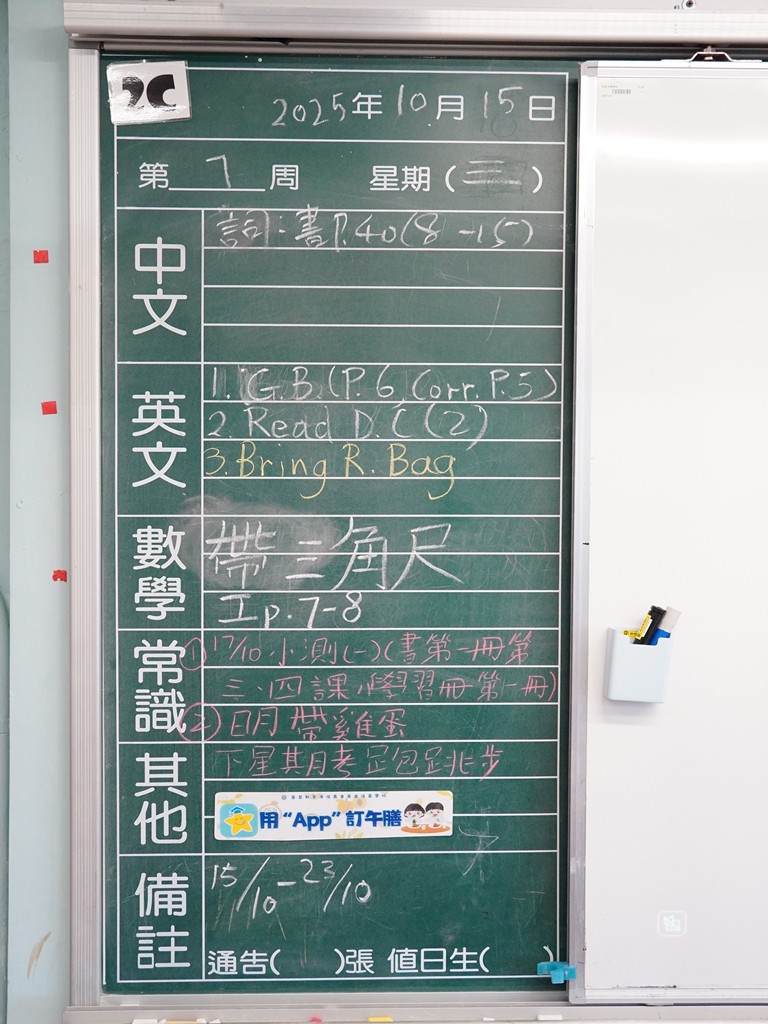 2C
2025年10月15日
第7周 星期(三)
中文
詞：書P.40(8-15)
英文
1. G.B.(P.6, Corr. P.5)
2. Read D.C (2)
3. Bring R. Bag
數學
帶三角尺
工p.7-8
常識
①17/10小測(一)(書第一冊第
三、四課,學習冊第一冊)
②日月帶雞蛋
其他
下星其月考足包足兆步
用“App”訂午膳
備註
15/10-23/10
通告( )張 值日生( )